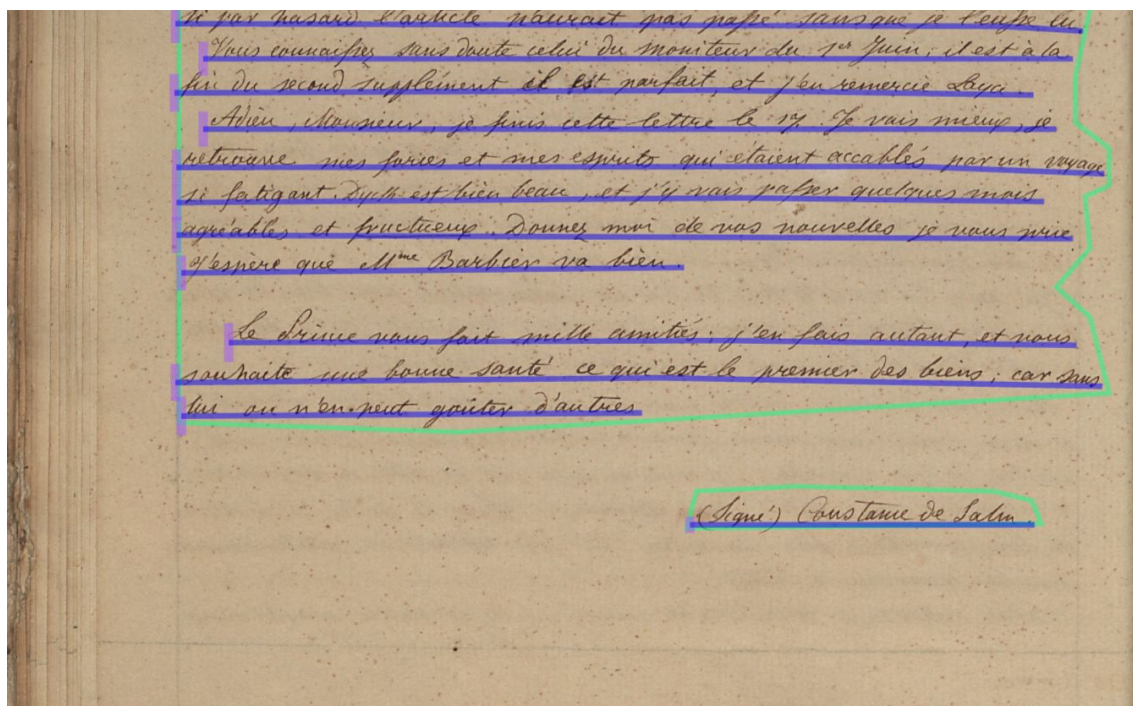 si par hasard l'article n'aurait pas passé sans que je l'eusse lu
Vous connaissez sans doute celui du moniteur du 1er Juin, il est à la
fin du second supplément il est parfait, et j'en remercie Laya.
Adieu, Monsieur, je finis cette lettre le 17. Je vais mieux, je
retrouve mes forces et mes esprits qui étaient accablés par un voyage
si fatigant. Dyck est bien beau, et j'y vais passer quelques mois
agréables et fructueux. Donnez moi de vos nouvelles je vous prie
J'espère que Mme Barbier va bien.
Le Prince vous fait mille amitiés; j'en fais autant, et vous
souhaite une bonne santé ce qui est le premier des biens; car sans
lui on n'en peut goûter d'autres
(Signé) Constance de Salm.